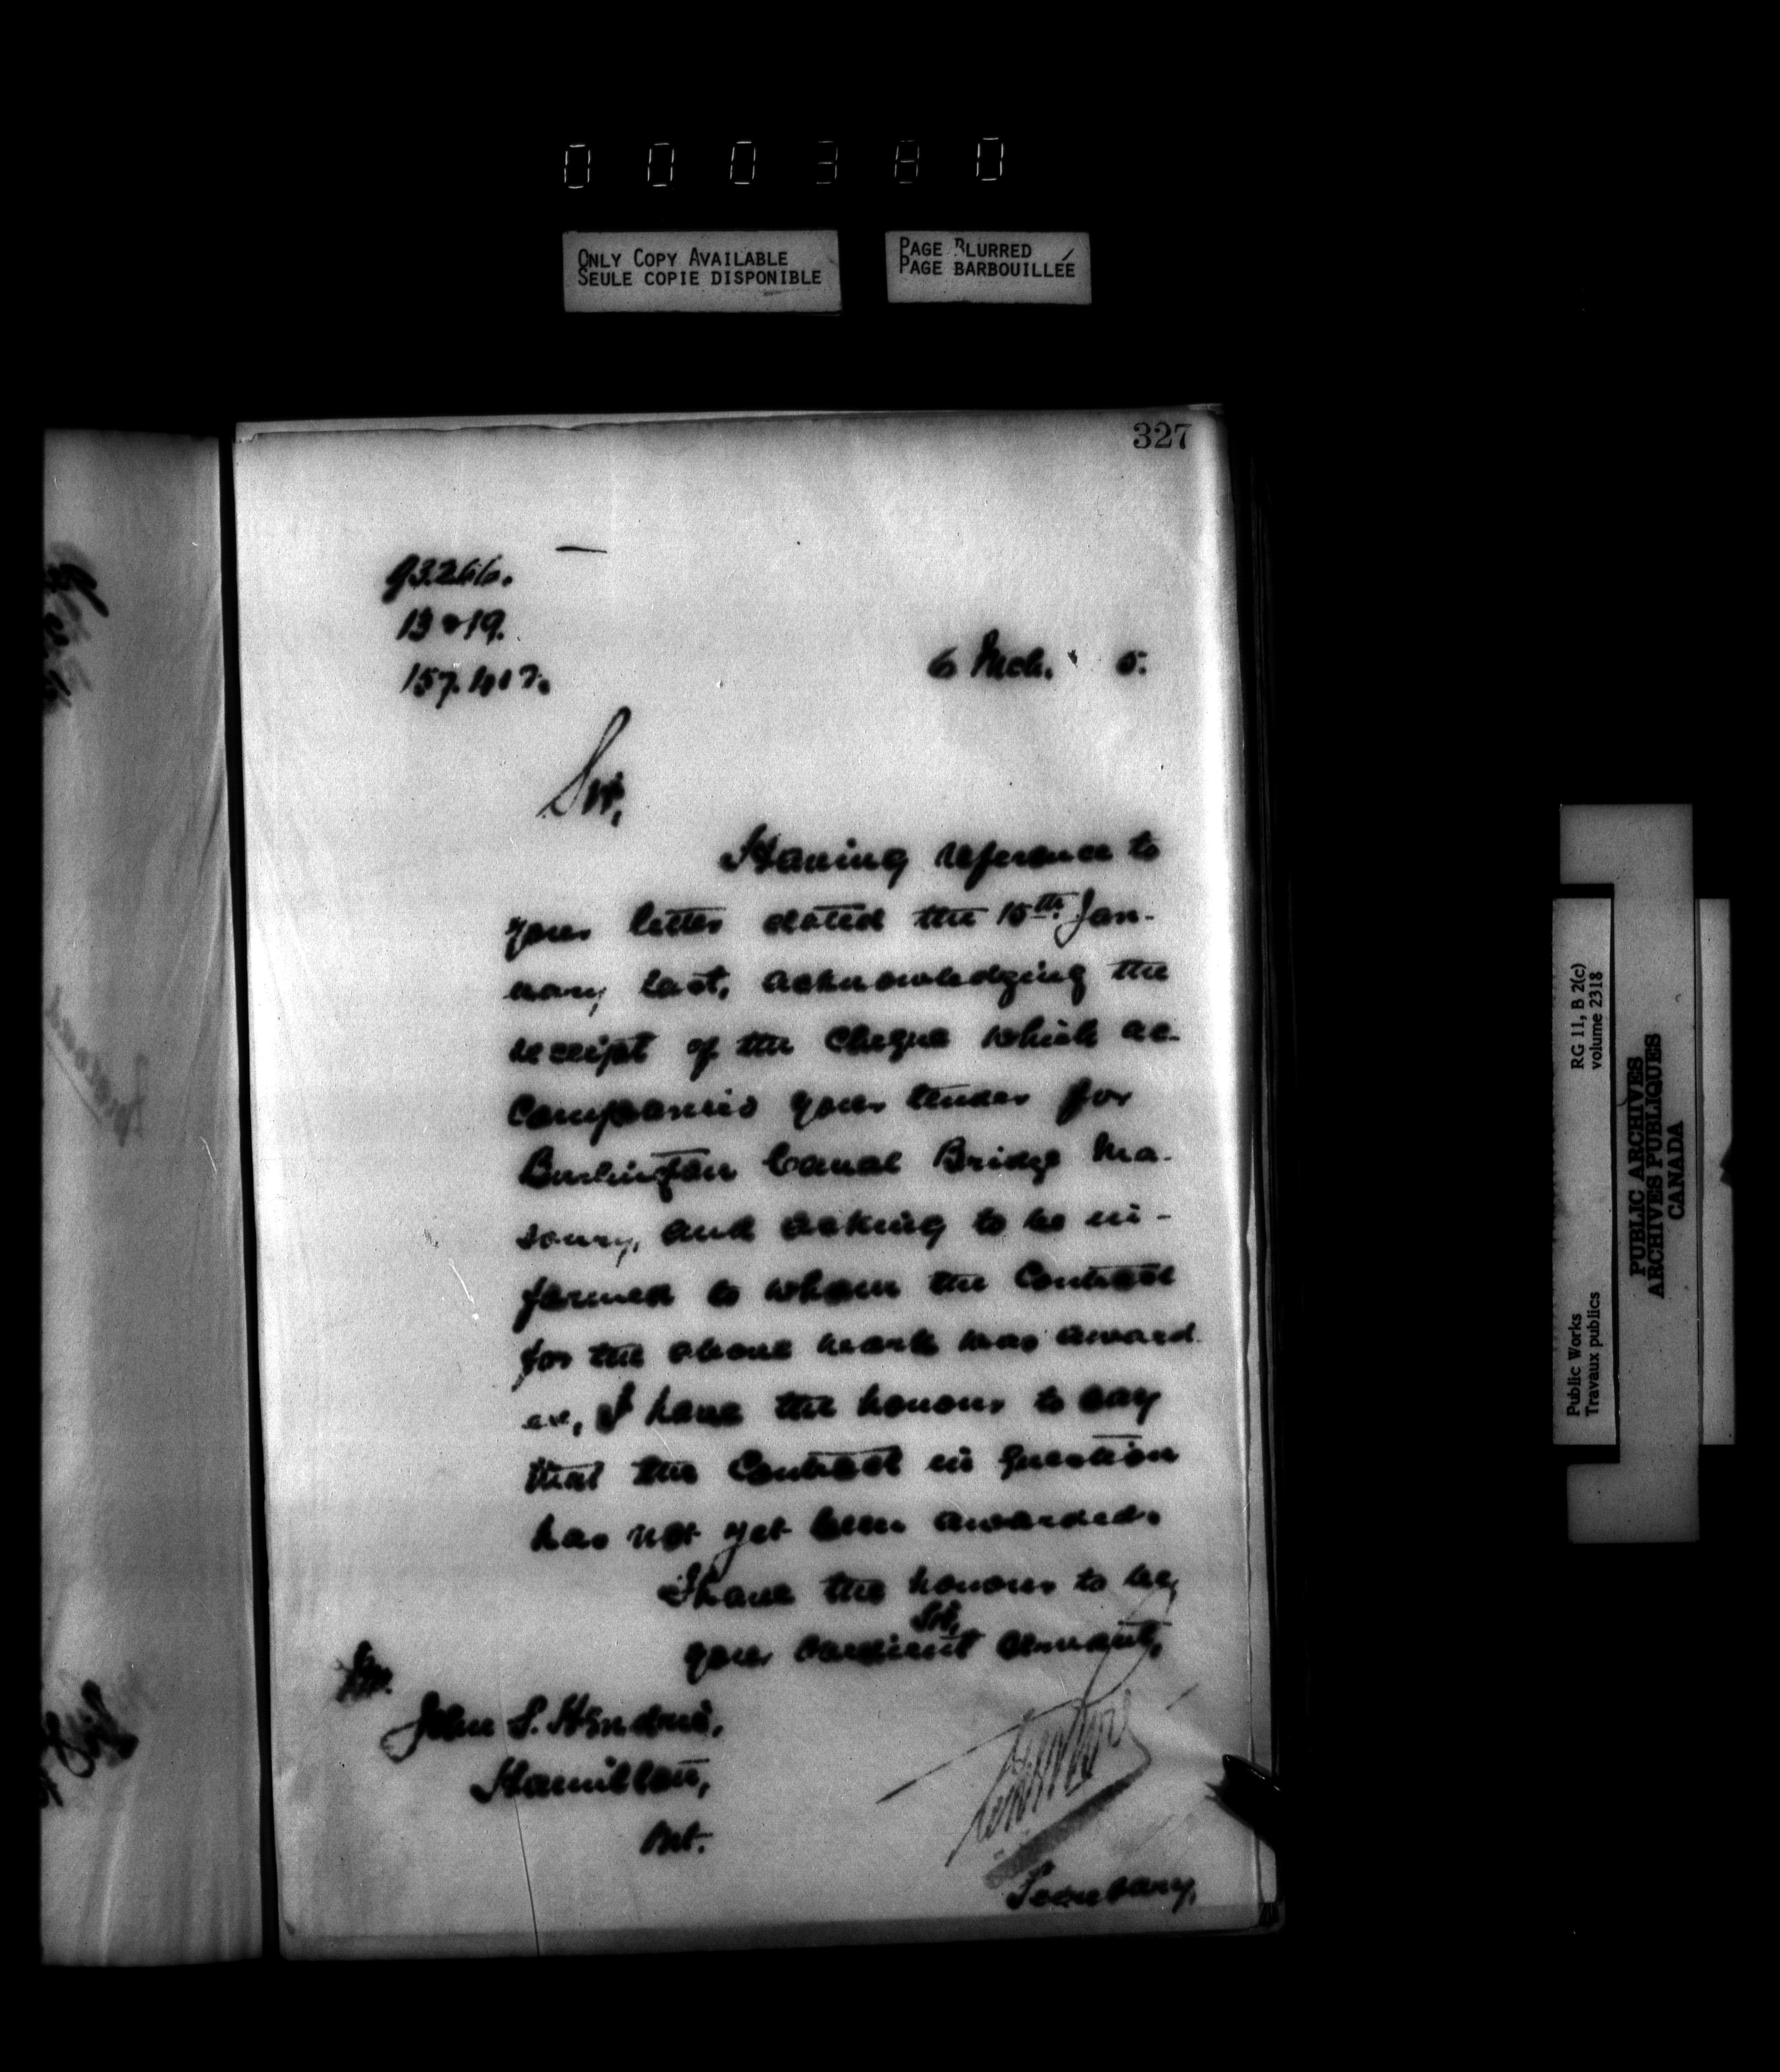 000380
ONLY COPY AVAILABLE
SEULE COPIE DISPONIBLE
PAGE BLURRED
PAGE BARBOUILLÉE
327
13 & 19.
6 Mch. 5.
Sir,
Having reference to
your letter dated the 15th Jan-
uary last, acknowledging the
receipt of the Cheque which ac-
companied your tender for
Burlington Canal Bridge Ma-
sonry, and asking to be in-
formed to whom the Contract
for the above work was award
ed, I have the honour to say
that the Contract in question
has not yet been awarded.
I have the honour to be,
Sir,
your obedient servant,
John S. Hendrie,
Hamilton,
Ont.
Secretary.
Public Works
Travaux publics
RG 11, B 2(c)
volume 2318
PUBLIC ARCHIVES
ARCHIVES PUBLIQUES
CANADA